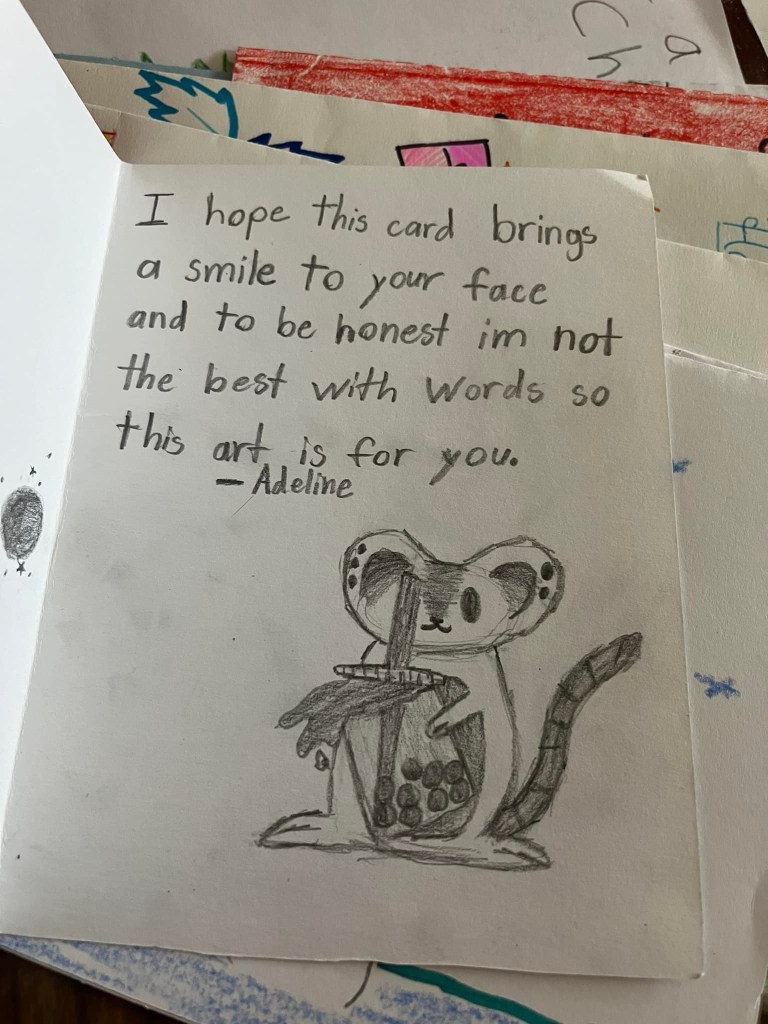 a
Ch
I hope this card brings
a smile to your face
and to be honest im not
the best with words so
this art is for you.
- Adeline